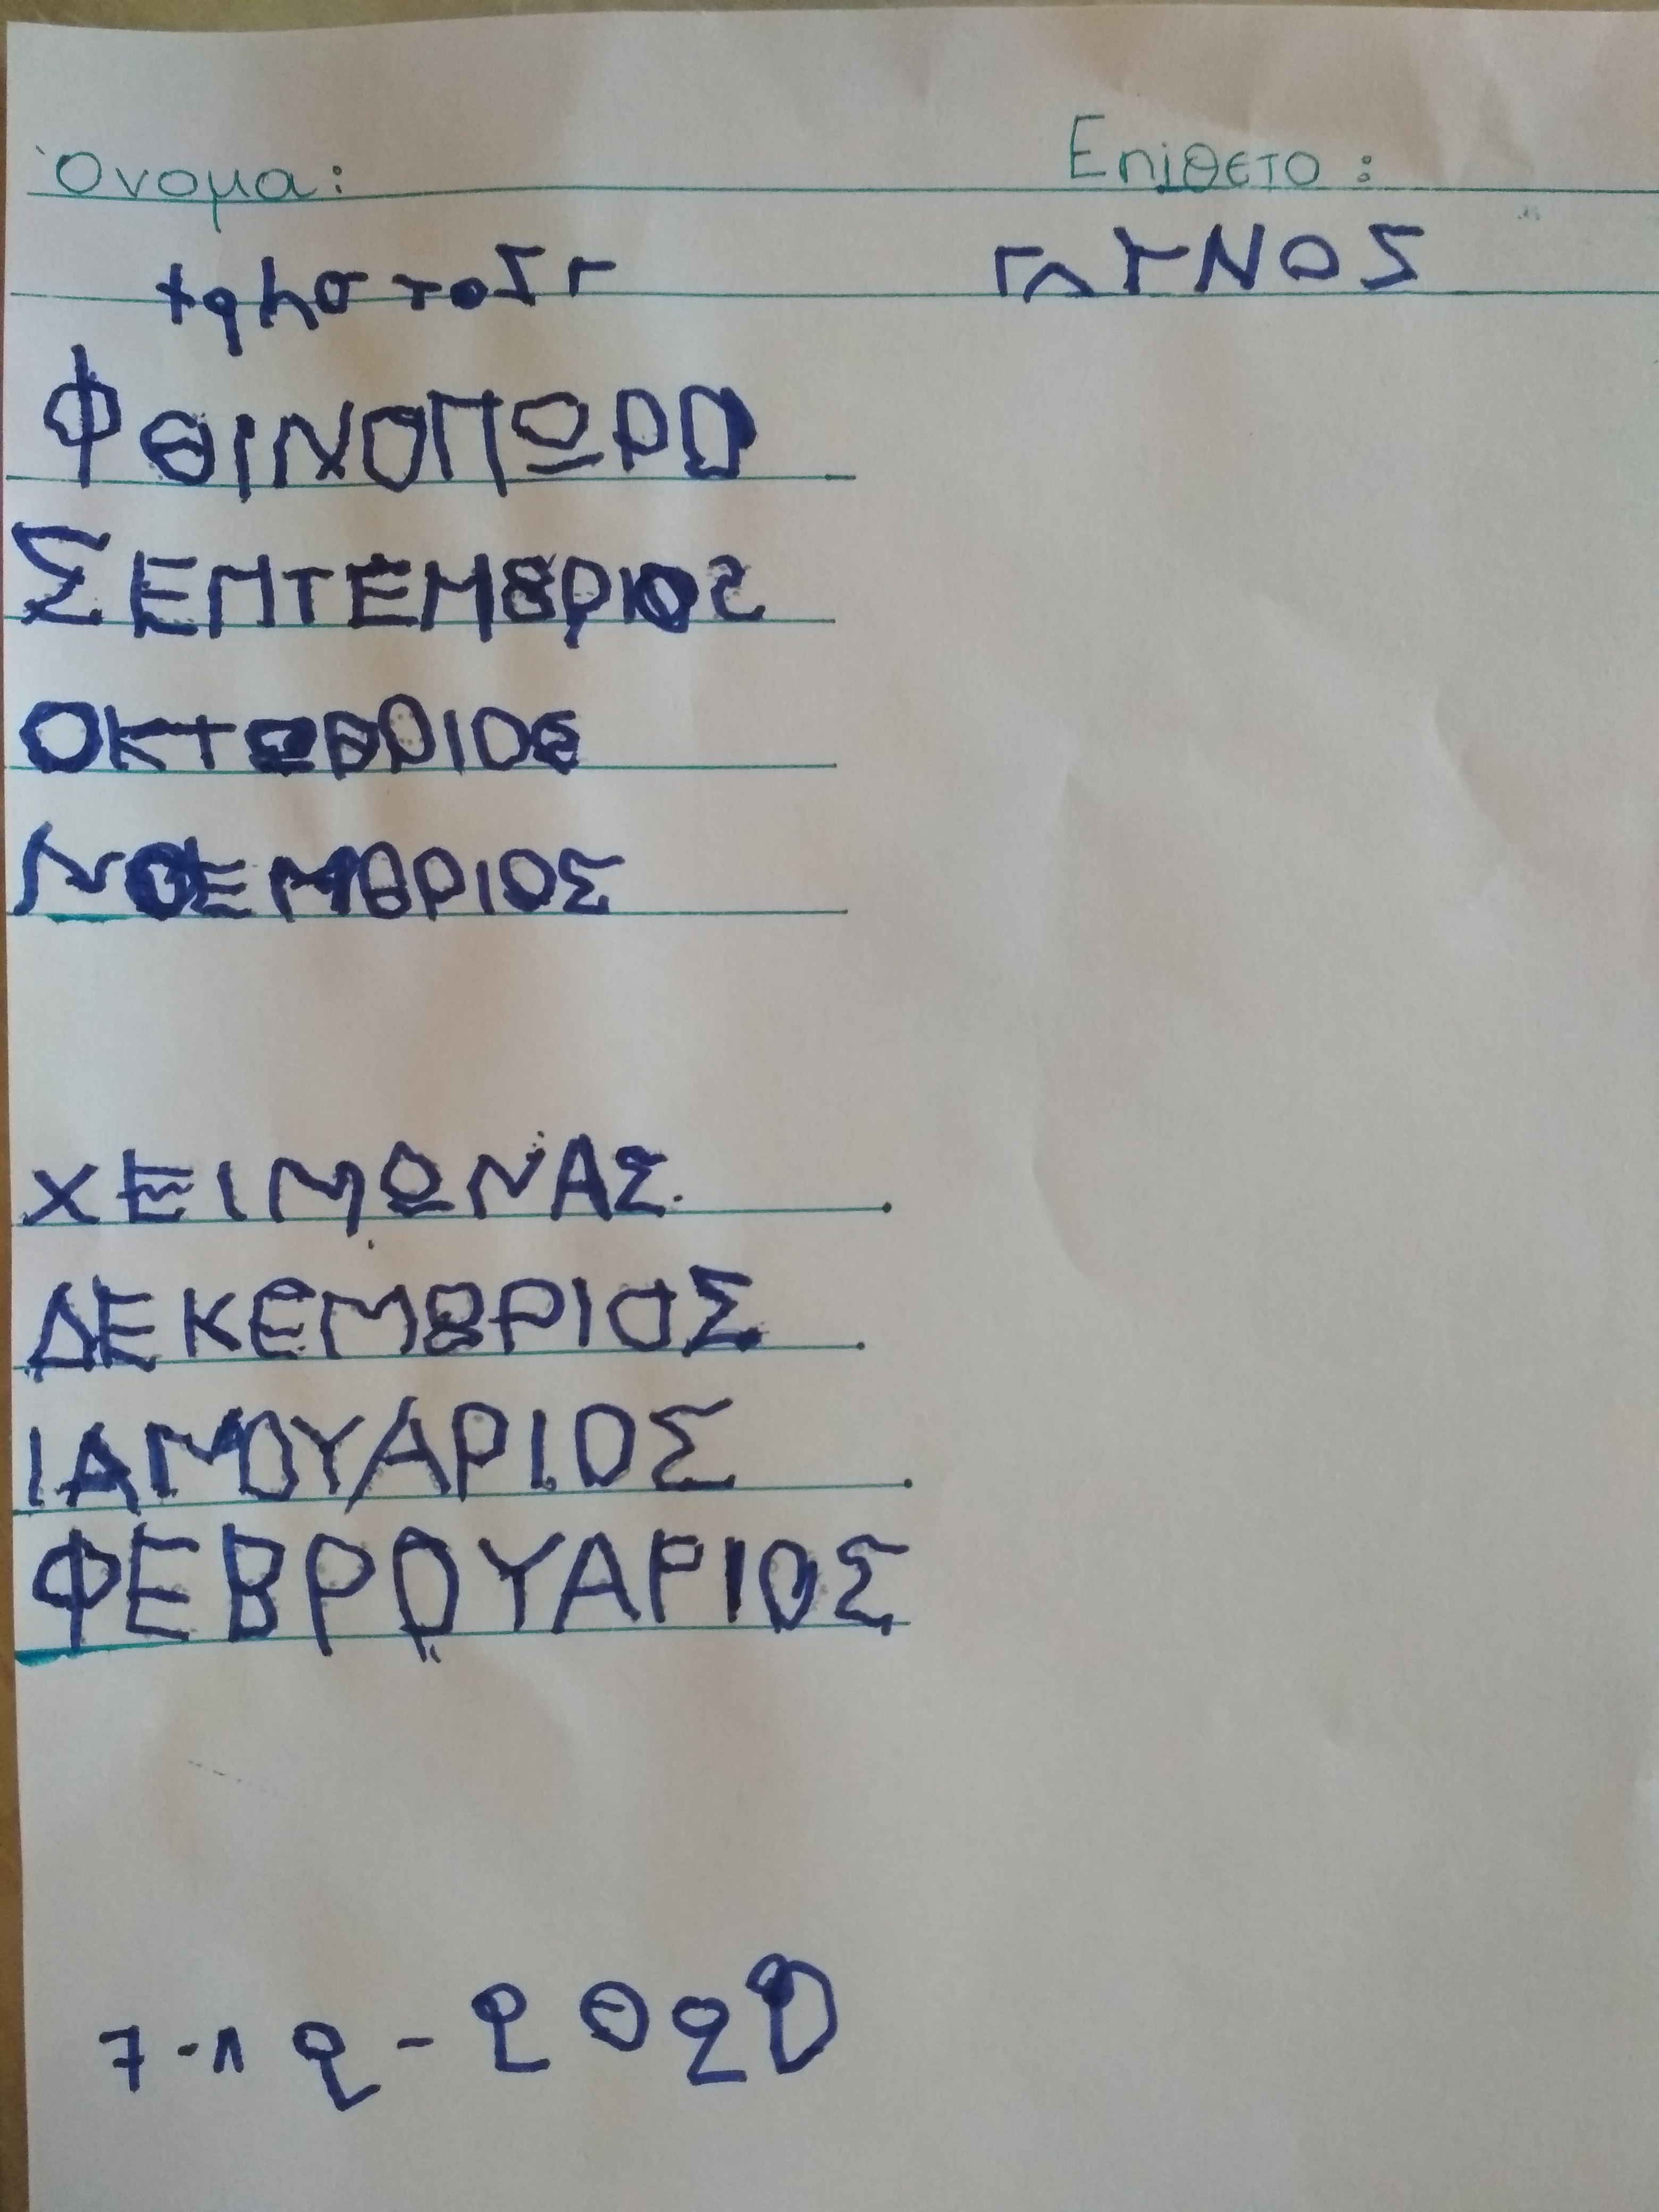 Όνομα: Επίθετο:
ΦΘΙΝΟΠΩΡΟ
ΣΕΠΤΕΜΒΡΙΟΣ
ΟΚΤΩΒΡΙΟΣ
ΝΟΕΜΒΡΙΟΣ
ΧΕΙΜΩΝΑΣ.
ΔΕΚΕΜΒΡΙΟΣ.
ΙΑΝΟΥΑΡΙΟΣ.
ΦΕΒΡΟΥΑΡΙΟΣ
7-12-2020